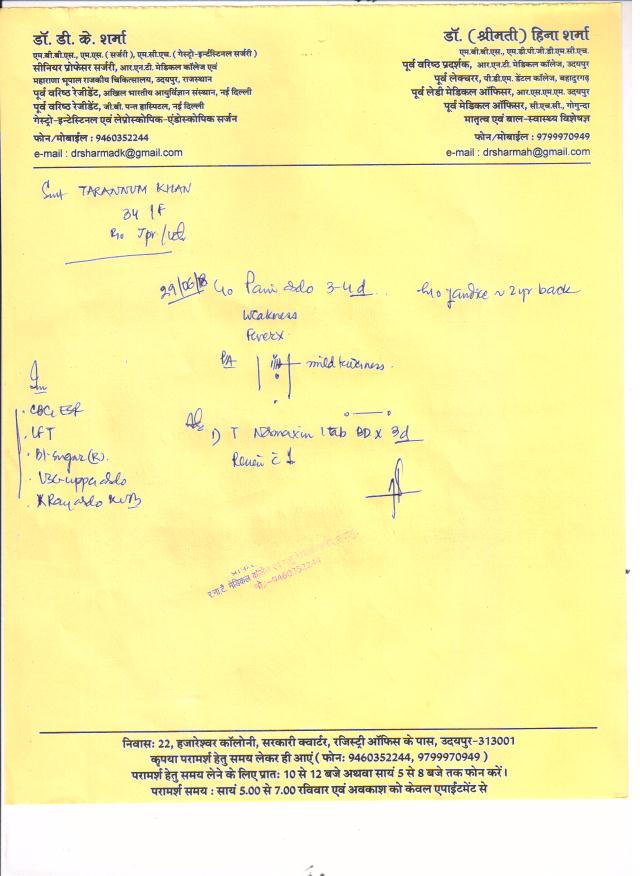 डॉ. डी. के. शर्मा
एम.बी.बी.एस., एम.एस. ( सर्जरी ), एम.सी.एच. ( गेस्ट्रो-इन्टेंस्टिनल सर्जरी )
सीनियर प्रोफेसर सर्जरी, आर.एन.टी. मेडिकल कॉलेज एवं
महाराणा भूपाल राजकीय चिकित्सालय, उदयपुर, राजस्थान
पूर्व वरिष्ठ रेजीडेंट, अखिल भारतीय आयुर्विज्ञान संस्थान, नई दिल्ली
पूर्व वरिष्ठ रेजीडेंट, जी.बी. पन्त हास्पिटल, नई दिल्ली
गेस्ट्रो-इन्टेस्टिनल एवं लेप्रोस्कोपिक-एंडोस्कोपिक सर्जन
फोन/मोबाईल : 9460352244
e-mail : drsharmadk@gmail.com
डॉ. (श्रीमती) हिना शर्मा
एम.बी.बी.एस., एम.डी.पी.जी.डी.एम.सी.एच.
पूर्व वरिष्ठ प्रदर्शक, आर.एन.टी. मेडिकल कॉलेज, उदयपुर
पूर्व लेक्चरर, पी.डी.एम. डेंटल कॉलेज, बहादुरगढ़
पूर्व लेडी मेडिकल ऑफिसर, आर.एस.एम.एम. उदयपुर
पूर्व मेडिकल ऑफिसर, सी.एच.सी., गोगुन्दा
मातृत्व एवं बाल-स्वास्थ्य विशेषज्ञ
फोन/मोबाईल : 9799970949
e-mail : drsharmah@gmail.com
Smt TARANNUM KHAN
34 / F
29/06/18 c/o Pain abdo 3-4 d.. h/o jaundice ~ 2 yr back
Weakness
Fever x
P/A mild tenderness.
CBC, ESR
LFT
Bl. Sugar (R).
USG upper abdo
X Ray abdo KUB
Adv
1) T 1 tab BD x 3d
Review c̄ 1
9460352244
निवास: 22, हजारेश्वर कॉलोनी, सरकारी क्वार्टर, रजिस्ट्री ऑफिस के पास, उदयपुर-313001
कृपया परामर्श हेतु समय लेकर ही आएं ( फोन: 9460352244, 9799970949 )
परामर्श हेतु समय लेने के लिए प्रात: 10 से 12 बजे अथवा सायं 5 से 8 बजे तक फोन करें।
परामर्श समय : सायं 5.00 से 7.00 रविवार एवं अवकाश को केवल एपाईंटमेंट से